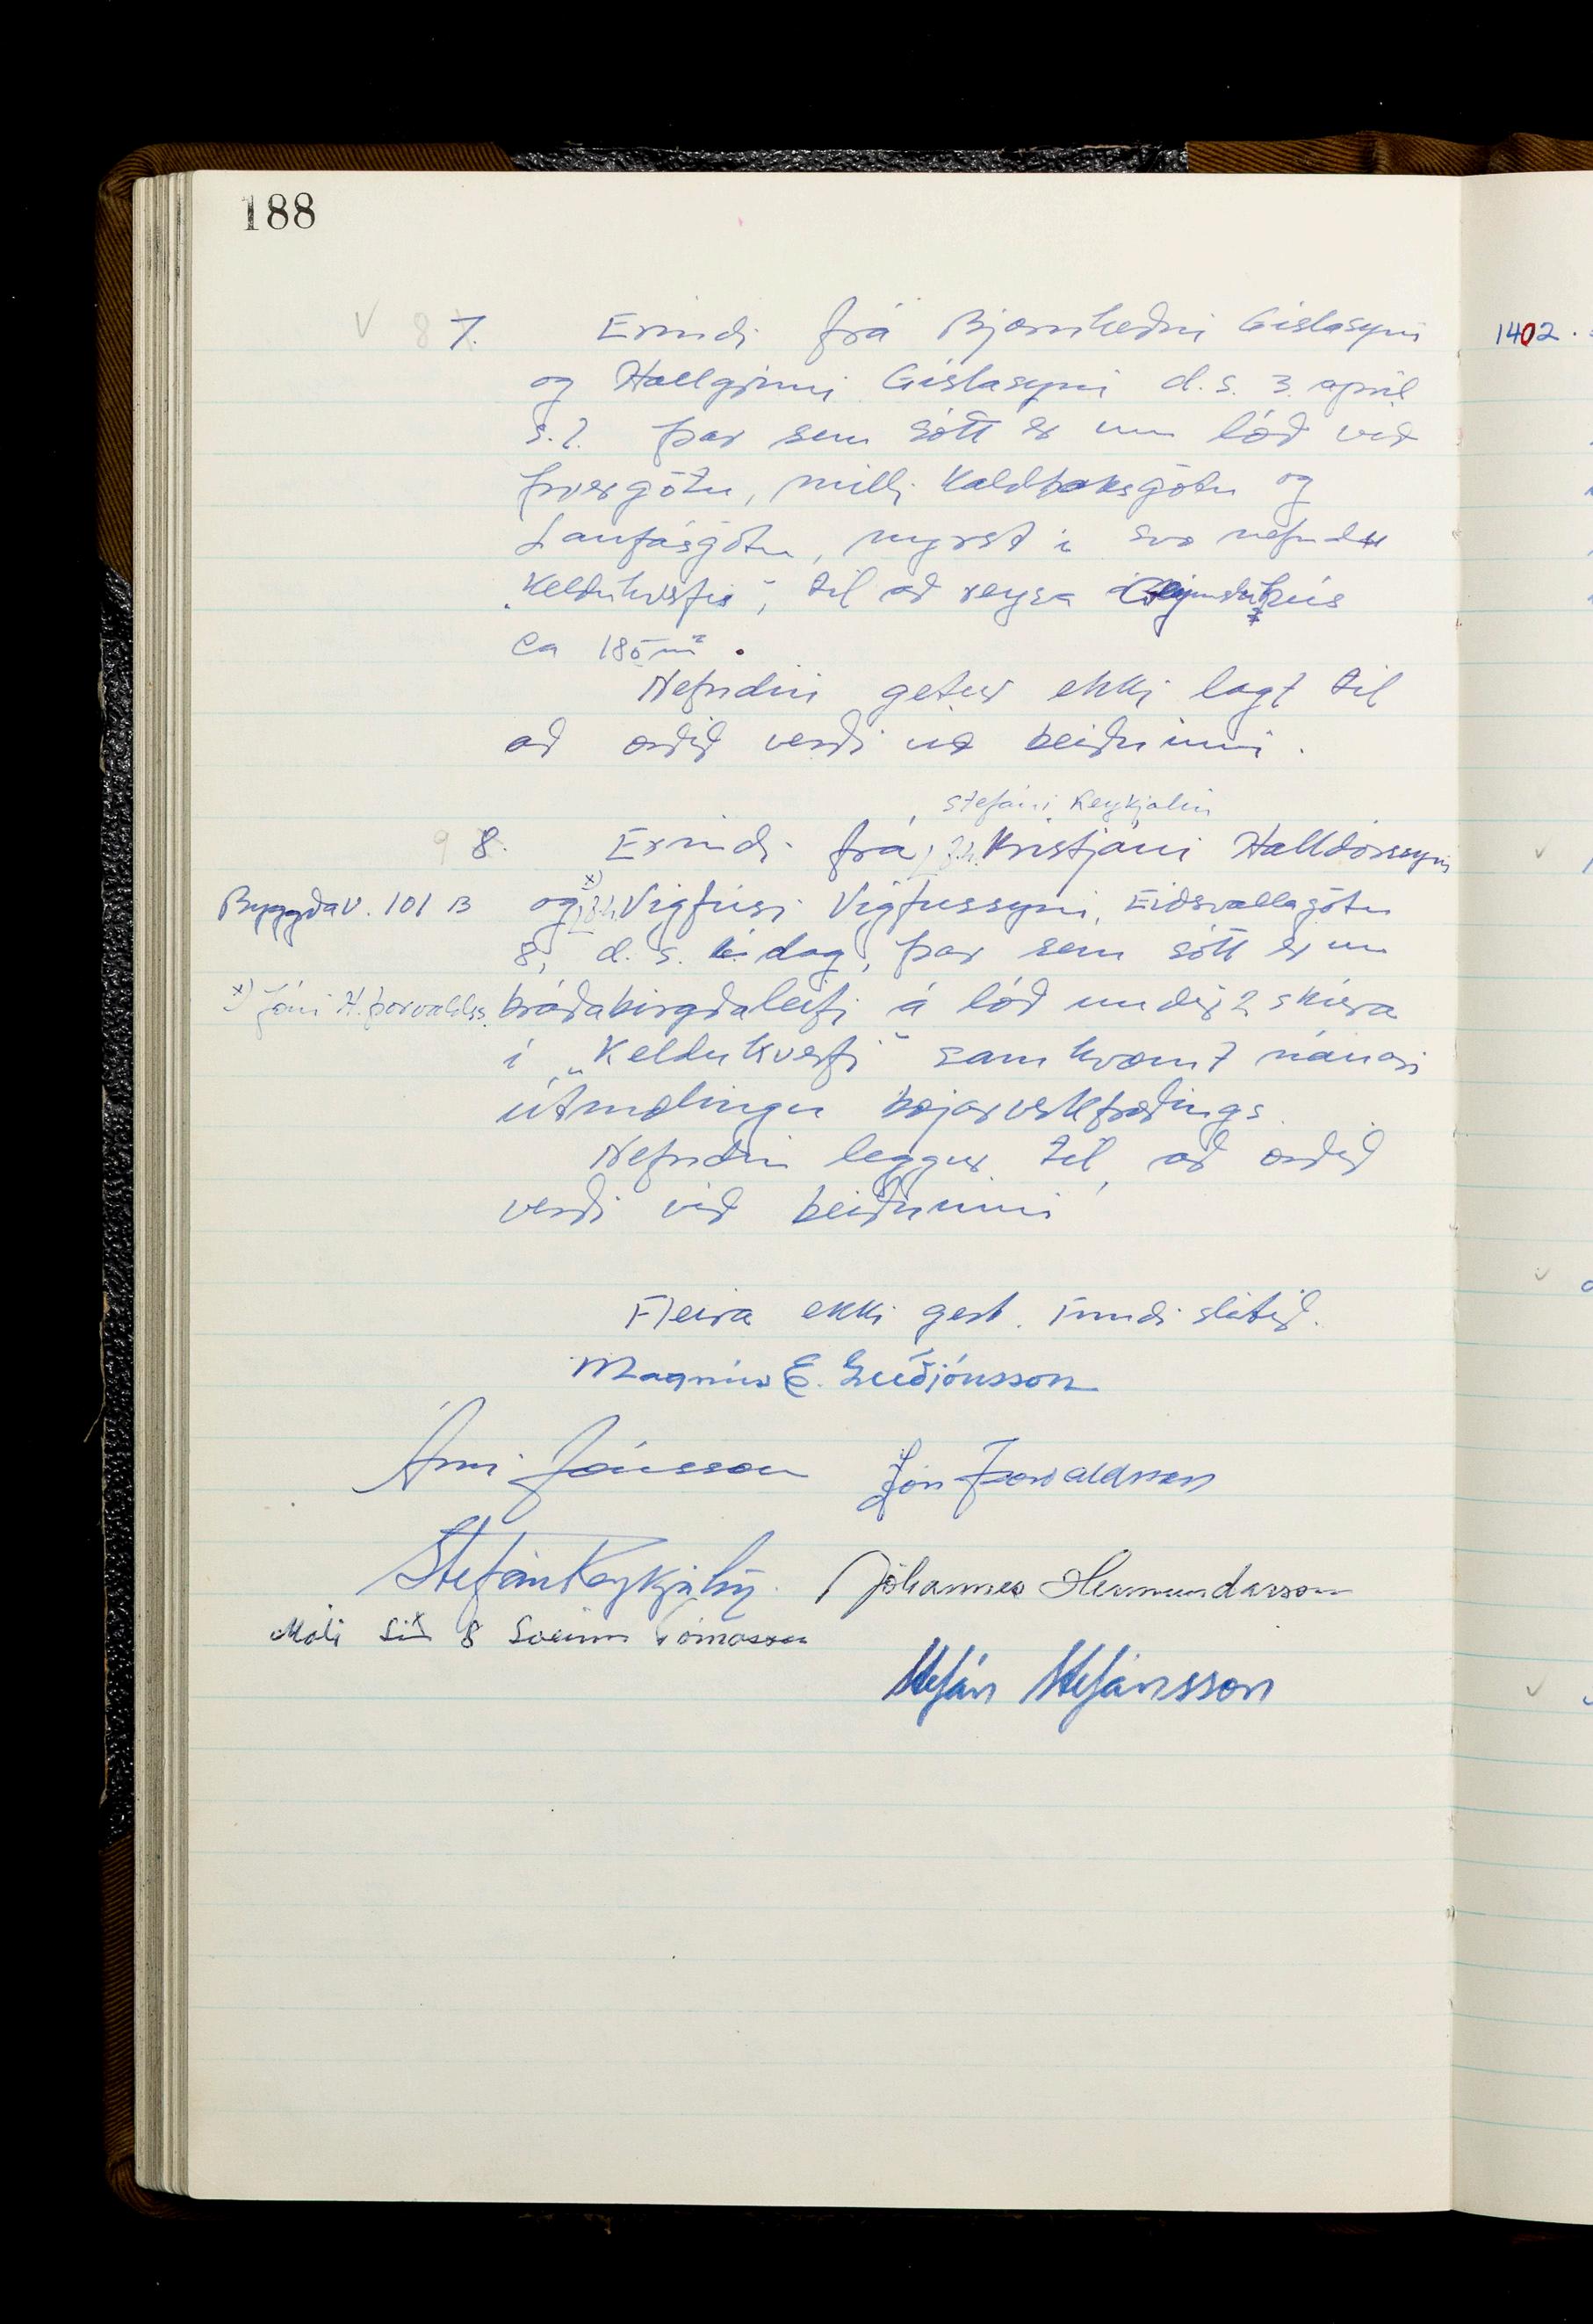 188
7. Erindi frá Bjarnheðni Gíslasyni
og Hallgrími Gíslasyni d.s. 3. apríl
s.l. þar sem sótt er um lóð við
þvergötu, milli Kaldbaksgötu og
Laufásgötu, nyrst í svo nefndu
"Kelduhverfi", til að reysa geymsluhús
ca 180 m².
Nefndin getur ekki lagt til
að orðið verði við beiðninni.
Stefáni Reykjalín
8. Erindi frá Kristjáni Halldórssyni
Byggðav. 101 B
og x) Vigfúsi Vigfússyni, Eiðsvallagötu
8, d.s. í dag, þar sem sótt er um
x) Jóni H. Þorvaldss.
bráðabirgðaleyfi á lóð undir 2 skúra
í "Kelduhverfi" samkvæmt nánari
útmælingu bæjarverkfræðings.
Nefndin leggur til, að orðið
verði við beiðninni
Fleira ekki gert. Fundi slitið.
Magnús E. Guðjónsson
Árni Jónsson Jón Þorvaldsson
Stefán Reykjalín Jóhannes Hermundarson
Móti lið 8 Sveinn Tómasson
Stefán Stefánsson
1402.